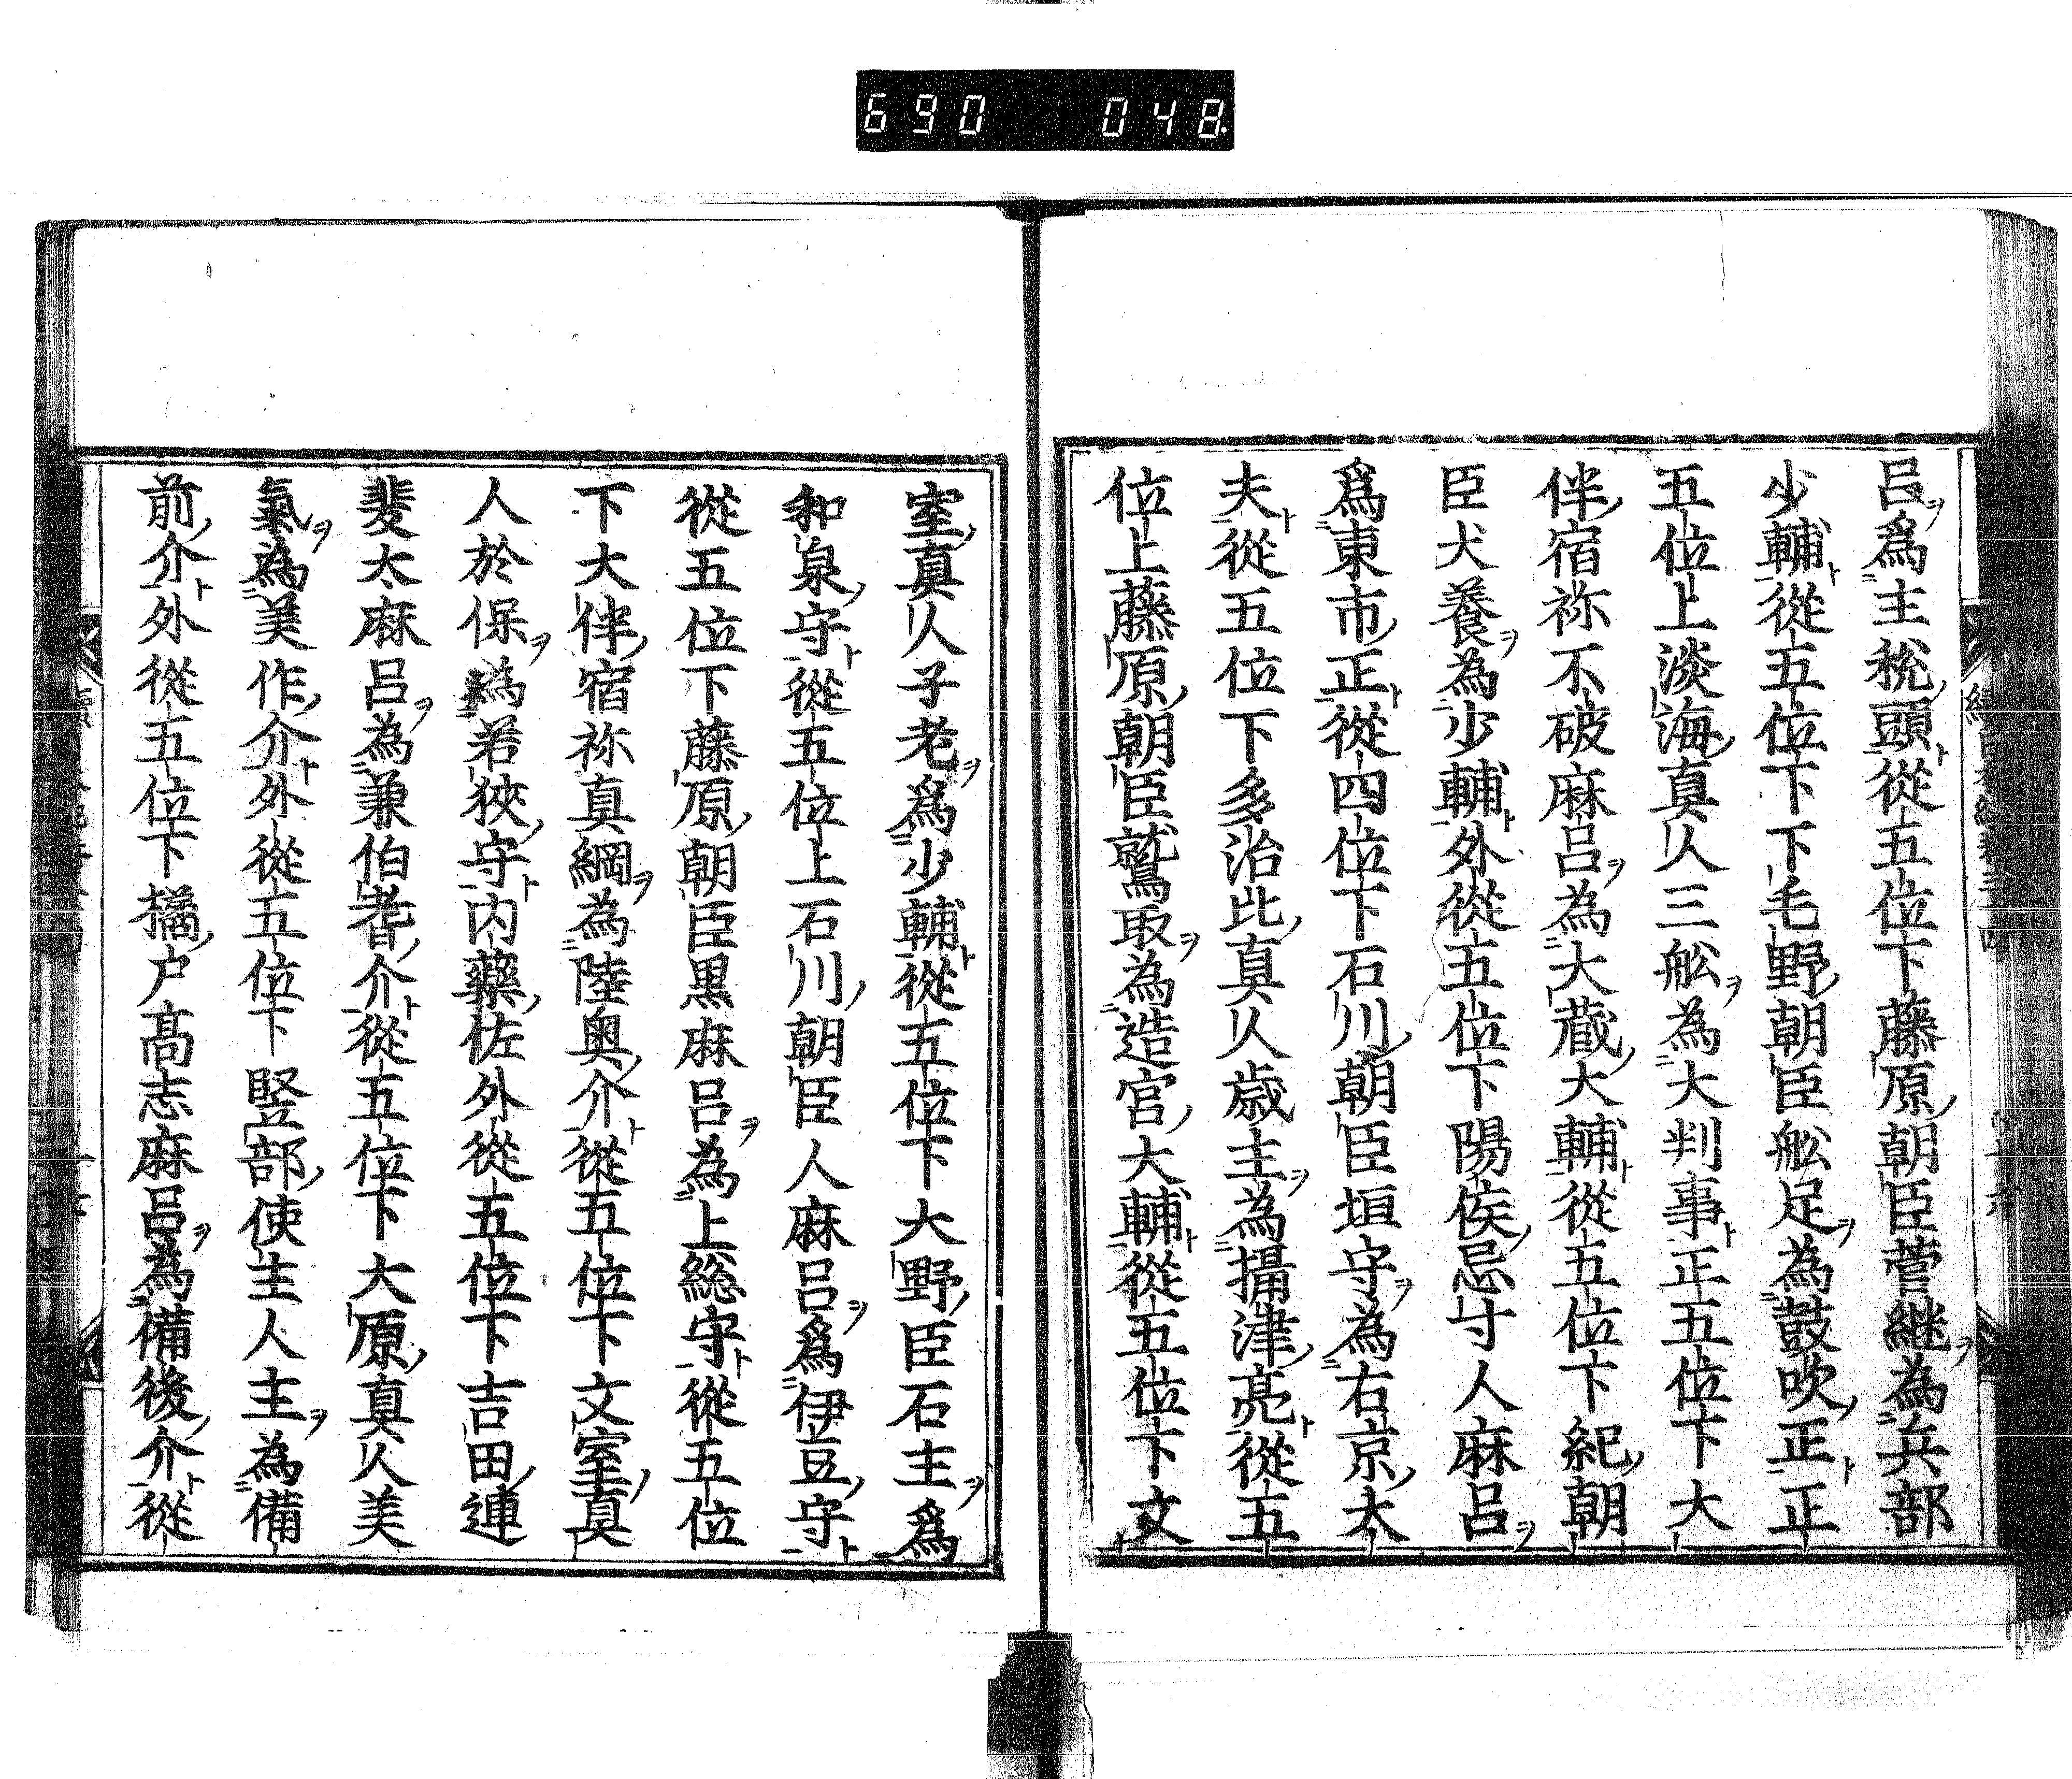 690 048
呂ヲ爲ニ主稅ノ頭ト從五位下藤原ノ朝臣菅継ヲ為ニ兵部
少輔ト從五位下下毛野ノ朝臣舩足ヲ為ニ鼓吹ノ正ト正
五位上淡海ノ真人三舩ヲ為ニ大判事ト正五位下大
伴ノ宿祢不破麻呂ヲ為ニ大蔵ノ大輔ト從五位下紀ノ朝
臣犬養ヲ為ニ少輔ト外從五位下陽侯ノ忌寸人麻呂ヲ
爲ニ東市ノ正ト從四位下石川ノ朝臣垣守ヲ為ニ右京ノ大
夫ト從五位下多治比ノ真人歳主ヲ為ニ攝津ノ亮ト從五
位上藤原ノ朝臣鷲取ヲ為ニ造宮ノ大輔ト從五位下文
室ノ真人子老ヲ爲ニ少輔ト從五位下大野ノ臣石主ヲ爲ニ
和泉ノ守ト從五位上石川ノ朝臣人麻呂ヲ爲ニ伊豆ノ守ト
從五位下藤原ノ朝臣黒麻呂ヲ為ニ上総守ト從五位
下大伴ノ宿祢真綱ヲ為ニ陸奥ノ介ト從五位下文室ノ真
人於保ヲ為ニ若狹ノ守ト内藥ノ佐外從五位下吉田ノ連
斐太麻呂ヲ為ニ兼伯耆ノ介ト從五位下大原ノ真人美
氣ヲ為ニ美作ノ介ト外從五位下竪部ノ使主人主ヲ為ニ備
前ノ介ト外從五位下橘ノ戸高志麻呂ヲ為ニ備後ノ介ト從